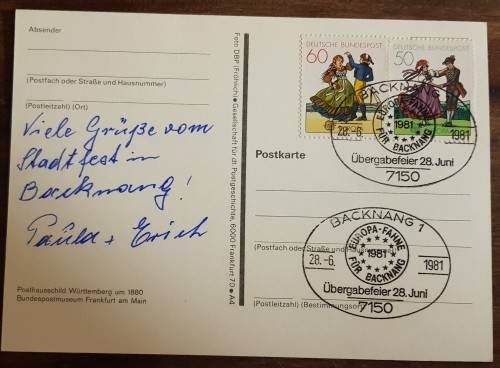 Absender
(Postfach oder Straße und Hausnummer)
(Postleitzahl) (Ort)
Viele Grüße vom
Stadtfest in
Backnang!
Paula + Erich
Posthausschild Württemberg um 1880
Bundespostmuseum Frankfurt am Main
Foto DBP (Fröhlich) • Gesellschaft für dt. Postgeschichte, 6000 Frankfurt 70 • A4
DEUTSCHE BUNDESPOST
60
DEUTSCHE BUNDESPOST
50
BACKNANG
EUROPA-FAHNE
28.-6.
1981
1981
FÜR BACKNANG
Übergabefeier 28. Juni
7150
Postkarte
BACKNANG 1
EUROPA-FAHNE
28.-6.
1981
1981
FÜR BACKNANG
Übergabefeier 28. Juni
7150
(Postfach oder Straße und Hausnummer)
(Postleitzahl) (Bestimmungsort)